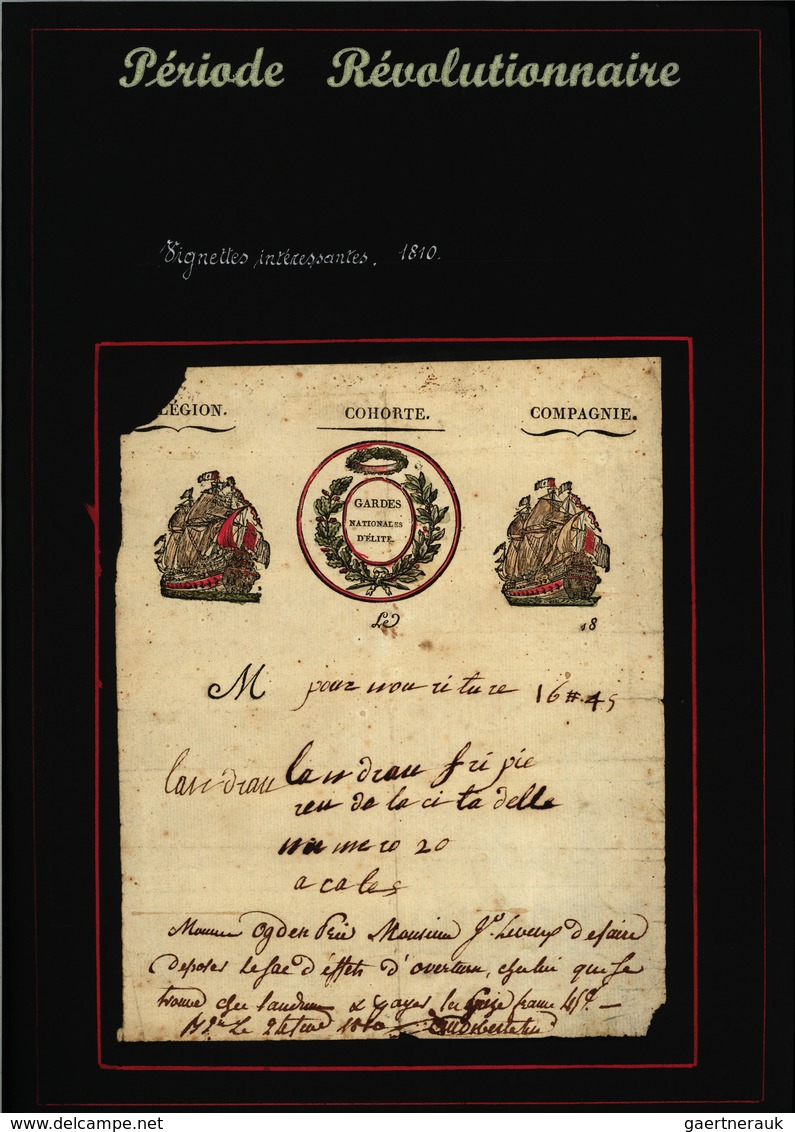 Période Révolutionnaire
Vignettes intéressantes. 1810.
LÉGION. COHORTE. COMPAGNIE.
GARDES
NATIONALES
D'ÉLITE.
Le 18
M pour nouriture 16 #. 45
landrau landrau fripie
reu de la citadelle
numero 20
a cales
Monsieur Ogden Prie Monsieur Leveux de faire
deposer le sac d'effets d'overture, chez lui qui se
trouve chez landrau & payer les Seize franc 45 c. —
Le 24 1810
delcampe.net
gaertnerauk